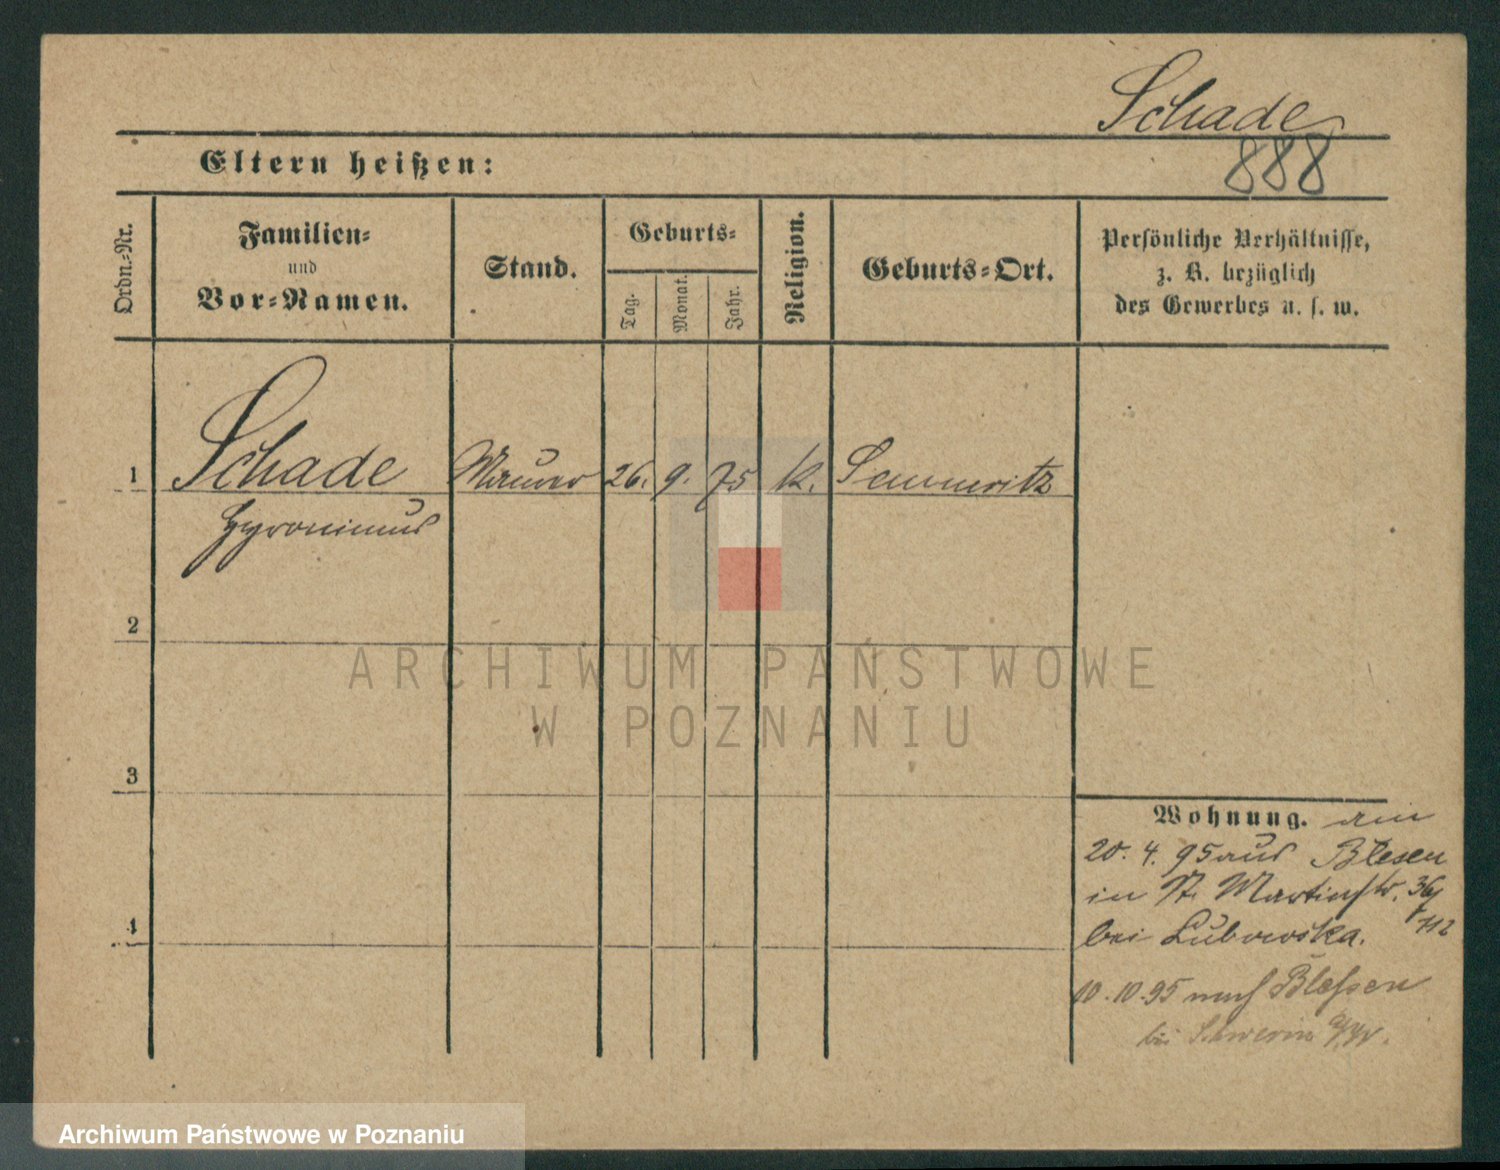 Schade
888
Eltern heißen:
Ordn.-Nr.
Familien-
und
Vor-Namen.
Stand.
Geburts-
Tag.
Monat.
Jahr.
Religion.
Geburts-Ort.
Persönliche Verhältnisse,
z. B. bezüglich
des Gewerbes u. s. w.
1
Schade
Maurer
26.
9.
75
k.
Semmritz
Hyronimus
2
ARCHIWUM PAŃSTWOWE
W POZNANIU
3
Wohnung. am
20. 4. 95 aus Blesen
in St. Martinstr. 36
bei Lubowska.
4
10.10.95 nach Blessen
bei Schwerin a/W.
Archiwum Państwowe w Poznaniu